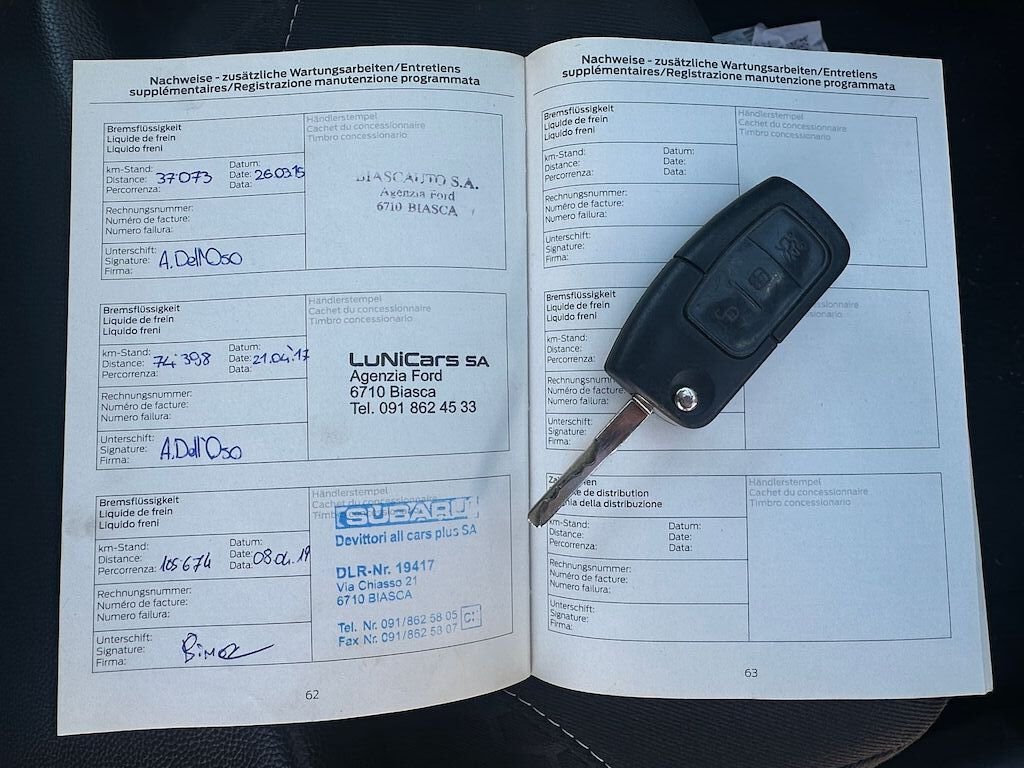 Nachweise - zusätzliche Wartungsarbeiten/Entretiens
supplémentaires/Registrazione manutenzione programmata
Bremsflüssigkeit
Liquide de frein
Liquido freni
Händlerstempel
Cachet du concessionnaire
Timbro concessionario
km-Stand:
Distance: 37073
Percorrenza:
Datum:
Date: 26.03.15
Data:
BIASCAUTO S.A.
Agenzia Ford
6710 BIASCA
Rechnungsnummer:
Numéro de facture:
Numero failura:
Unterschift:
Signature: A. Dell'Oso
Firma:
Bremsflüssigkeit
Liquide de frein
Liquido freni
Händlerstempel
Cachet du concessionnaire
Timbro concessionario
km-Stand:
Distance: 74'398
Percorrenza:
Datum:
Date: 21.04.17
Data:
LuNiCars SA
Agenzia Ford
6710 Biasca
Tel. 091 862 45 33
Rechnungsnummer:
Numéro de facture:
Numero failura:
Unterschift:
Signature: A. Dell'Oso
Firma:
Bremsflüssigkeit
Liquide de frein
Liquido freni
Händlerstempel
Cachet du concessionnaire
SUBARU
Devittori all cars plus SA
DLR-Nr. 19417
Via Chiasso 21
6710 BIASCA
Tel. Nr. 091/862 58 05
Fax Nr. 091/862 58 07
km-Stand:
Distance:
Percorrenza: 105674
Datum:
Date: 08.04.19
Data:
Rechnungsnummer:
Numéro de facture:
Numero failura:
Unterschift:
Signature:
Firma:
62
Nachweise - zusätzliche Wartungsarbeiten/Entretiens
supplémentaires/Registrazione manutenzione programmata
Bremsflüssigkeit
Liquide de frein
Liquido freni
Händlerstempel
Cachet du concessionnaire
Timbro concessionario
km-Stand:
Distance:
Percorrenza:
Datum:
Date:
Data:
Rechnungsnummer:
Numéro de facture:
Numero failura:
Unterschift:
Signature:
Firma:
Bremsflüssigkeit
Liquide de frein
Liquido freni
km-Stand:
Distance:
Percorrenza:
Numéro de facture:
Numero failura:
Unterschift:
Signature:
Firma:
de distribution
della distribuzione
Händlerstempel
Cachet du concessionnaire
Timbro concessionario
km-Stand:
Distance:
Percorrenza:
Datum:
Date:
Data:
Rechnungsnummer:
Numéro de facture:
Numero failura:
Unterschift:
Signature:
Firma:
63